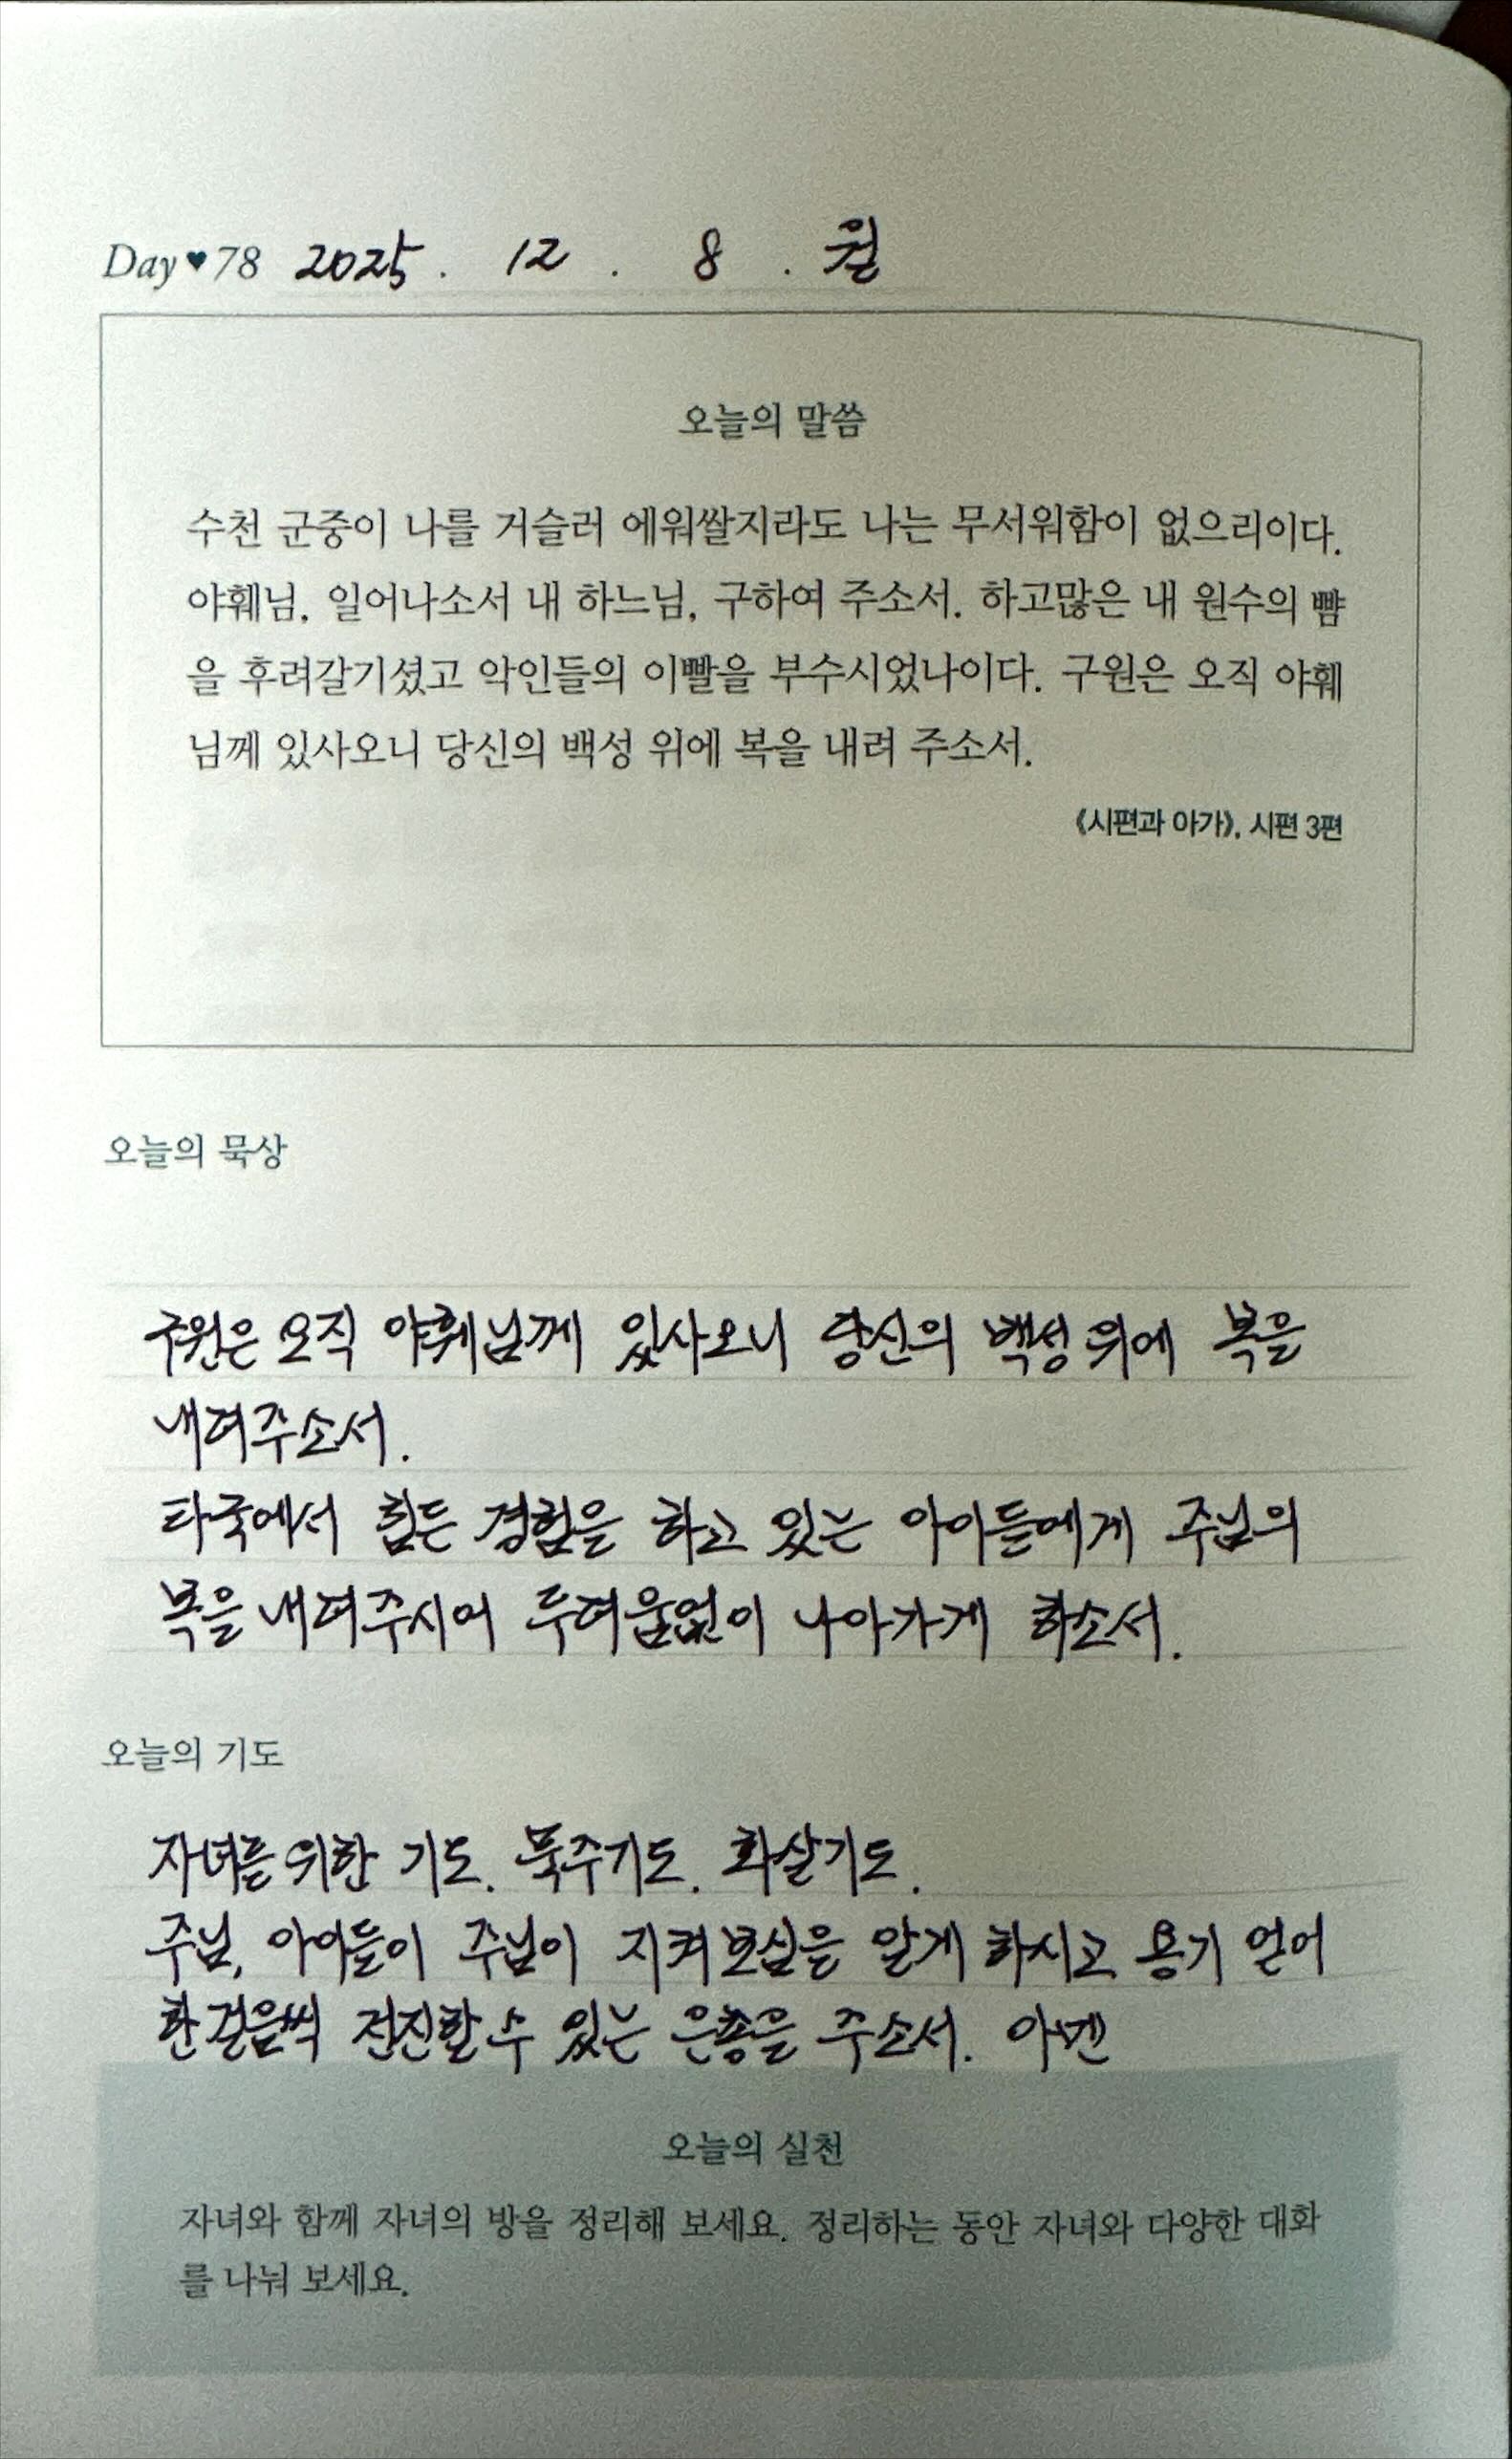 Day♥78 2025. 12. 8. 월
오늘의 말씀
수천 군중이 나를 거슬러 에워쌀지라도 나는 무서워함이 없으리이다.
야훼님, 일어나소서 내 하느님, 구하여 주소서. 하고많은 내 원수의 뺨
을 후려갈기셨고 악인들의 이빨을 부수시었나이다. 구원은 오직 야훼
님께 있사오니 당신의 백성 위에 복을 내려 주소서.
《시편과 아가》, 시편 3편
오늘의 묵상
구원은 오직 야훼님께 있사오니 당신의 백성 위에 복을
내려주소서.
타국에서 힘든 경험을 하고 있는 아이들에게 주님의
복을 내려주시어 두려움없이 나아가게 하소서.
오늘의 기도
자녀를 위한 기도. 묵주기도. 화살기도.
주님, 아이들이 주님이 지켜보심을 알게 하시고 용기 얻어
한걸음씩 전진할 수 있는 은총을 주소서. 아멘
오늘의 실천
자녀와 함께 자녀의 방을 정리해 보세요. 정리하는 동안 자녀와 다양한 대화
를 나눠 보세요.